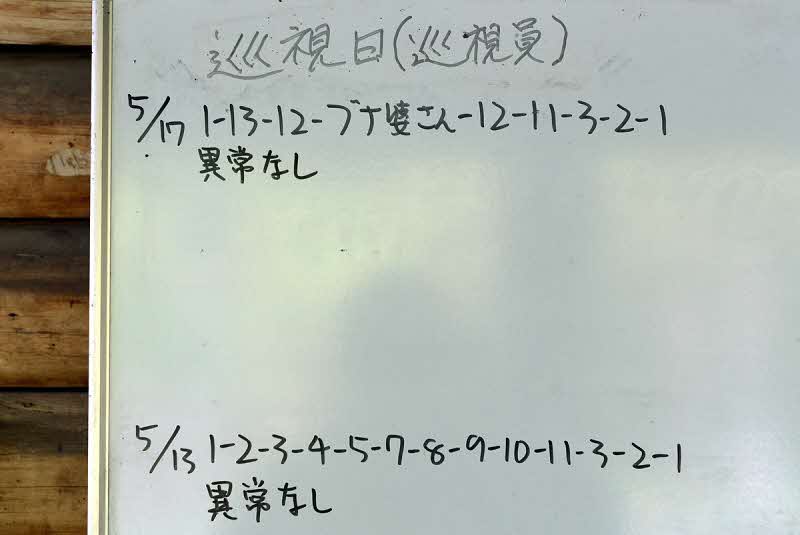 巡視日(巡視員)
5/17 1-13-12-ブナ婆さん-12-11-3-2-1
異常なし
5/13 1-2-3-4-5-7-8-9-10-11-3-2-1
異常なし